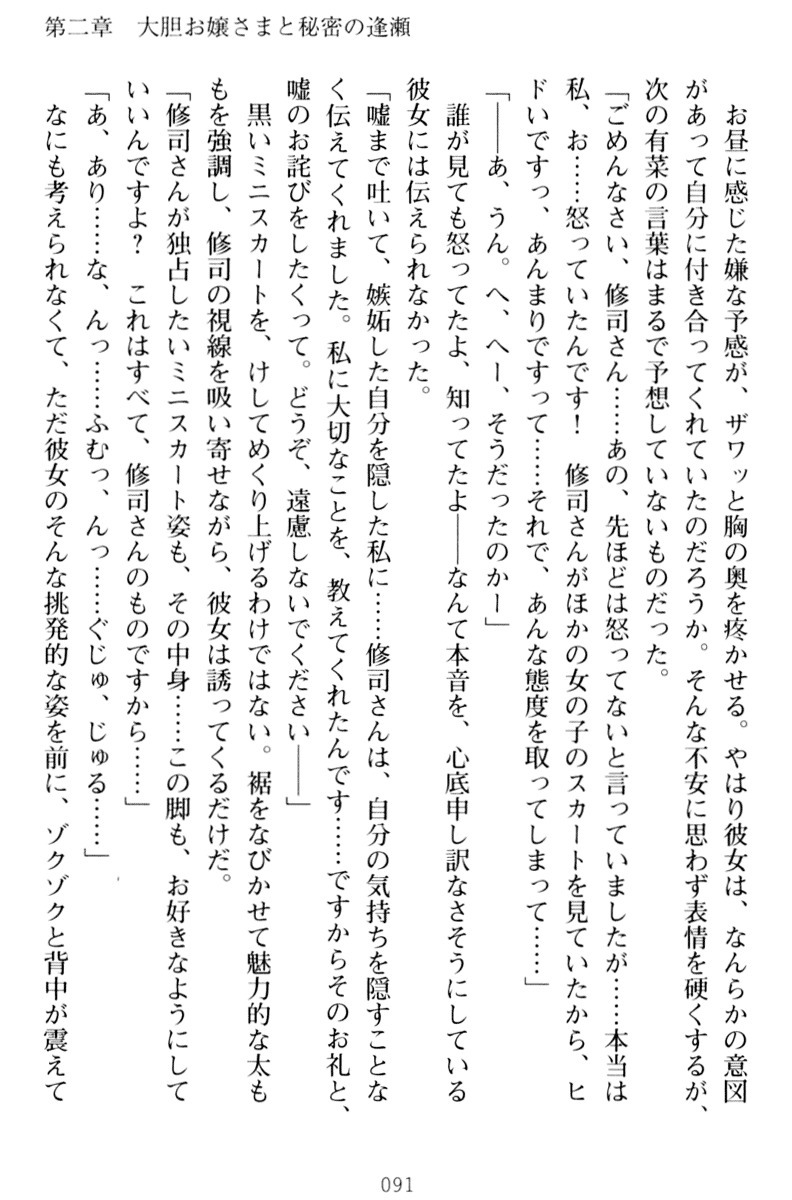 第二章　大胆お嬢さまと秘密の逢瀬
　お昼に感じた嫌な予感が、ザワッと胸の奥を疼かせる。やはり彼女は、なんらかの意図
があって自分に付き合ってくれていたのだろうか。そんな不安に思わず表情を硬くするが、
次の有菜の言葉はまるで予想していないものだった。
「ごめんなさい、修司さん……あの、先ほどは怒ってないと言っていましたが……本当は
私、お……怒っていたんです！　修司さんがほかの女の子のスカートを見ていたから、ヒ
ドいですっ、あんまりですって……それで、あんな態度を取ってしまって……」
「――あ、うん。へ、へー、そうだったのかー」
　誰が見ても怒ってたよ、知ってたよ――なんて本音を、心底申し訳なさそうにしている
彼女には伝えられなかった。
「嘘まで吐いて、嫉妬した自分を隠した私に……修司さんは、自分の気持ちを隠すことな
く伝えてくれました。私に大切なことを、教えてくれたんです……ですからそのお礼と、
嘘のお詫びをしたくって。どうぞ、遠慮しないでください――」
　黒いミニスカートを、けしてめくり上げるわけではない。裾をなびかせて魅力的な太も
もを強調し、修司の視線を吸い寄せながら、彼女は誘ってくるだけだ。
「修司さんが独占したいミニスカート姿も、その中身……この脚も、お好きなようにして
いいんですよ？　これはすべて、修司さんのものですから……」
「あ、あり……な、んっ……ふむっ、んっ……ぐじゅ、じゅる……」
　なにも考えられなくて、ただ彼女のそんな挑発的な姿を前に、ゾクゾクと背中が震えて
091